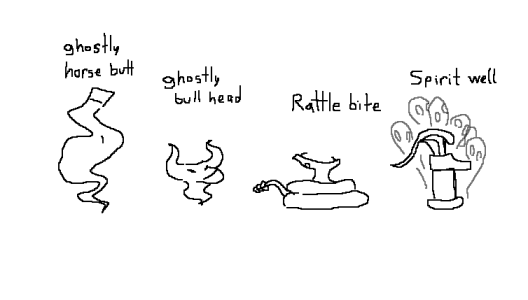 ghostly
horse butt
ghostly
bull head
Rattle bite
Spirit well